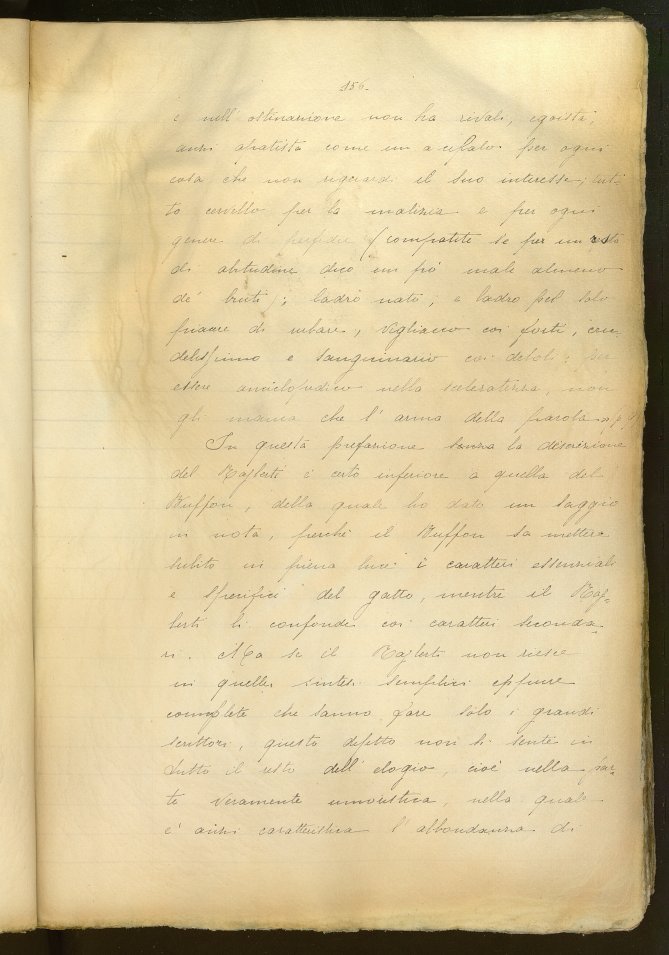 156-
e nell' ostinazione non ha rivali, egoista,
anzi apatista come un acefalo per ogni
cosa che non riguardi il suo interesse, tut-
to cervello per la malizia e per ogni
genere di perfidie (compatite se per un resto
di abitudine dico un po' male almeno
de' bruti); ladro nato, e ladro pel solo
piacere di rubare, vigliacco coi forti, cru-
delissimo e sanguinario coi deboli; per
essere enciclopedico nella scelleratezza, non
gli manca che l' arma della parola
In questa prefazione senza la descrizione
del Rajberti è certo inferiore a quella del
Buffon, della quale ho dato un saggio
in nota, perché il Buffon sa mettere
subito in piena luce i caratteri essenziali
e specifici del gatto, mentre il Raj-
berti li confonde coi caratteri seconda-
ri. Ma se il Rajberti non riesce
in quelle sintesi semplici eppure
complete che sanno fare solo i grandi
scrittori, questo difetto non si sente in
tutto il resto dell' elogio, cioè nella par-
te veramente umoristica, nella quale
è anzi caratteristica l' abbondanza di